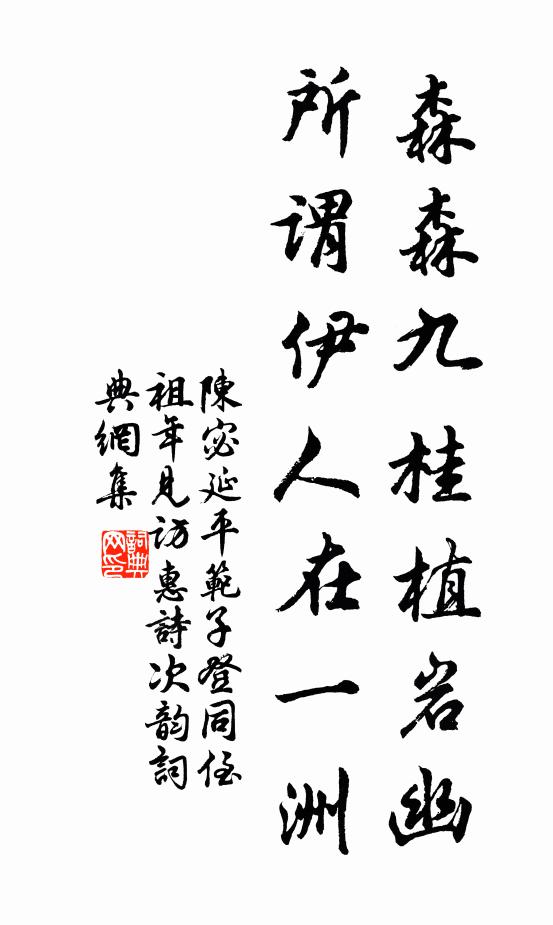 森森九桂植岩幽
所謂伊人在一洲
陳宓延平範子登同侄
祖年見訪惠詩次韵詞
典網集
詞典
网印